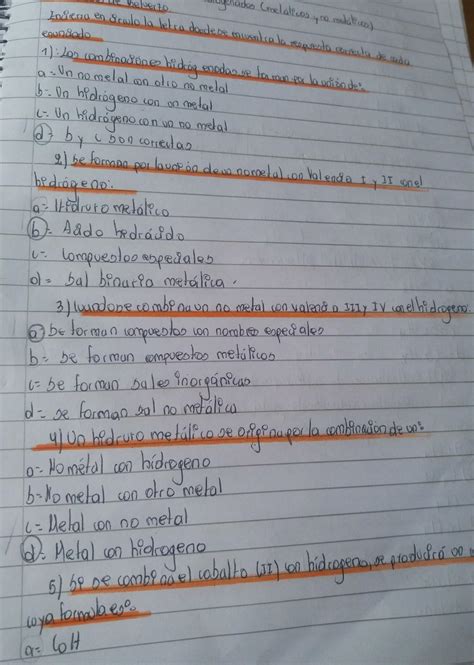 hidrogenados (metálicos y no metálicos)
Encierra en círculo la letra donde se encuentra la respuesta correcta de cada
enunciado
1) Las combinaciones hidrógenadas se forman por la unión de:
a= Un no metal con otro no metal
b= Un hidrógeno con un metal
c= Un hidrógeno con un no metal
d= b y c son correctas
2) Se forman por la unión de un no metal con Valencia I y II con el
hidrógeno:
a= Hidruro metálico
b= Acido hedrácido
c= Compuestos especiales
d= Sal binaria metálica.
3) Cuando se combina un no metal con valencia III y IV con el hidrogeno:
a= Se forman compuestos con nombres especiales
b= Se forman compuestos metálicos
c= Se forman sales inorgánicas
d= Se forman sal no metálica
4) Un hidruro metálico se origina por la combinacion de un:
a= No metal con hidrogeno
b= No metal con otro metal
c= Metal con no metal
d= Metal con hidrogeno
5) Se se combina el cobalto (II) con hidrogeno, se producirá un
cuya formula es:
a= CoH